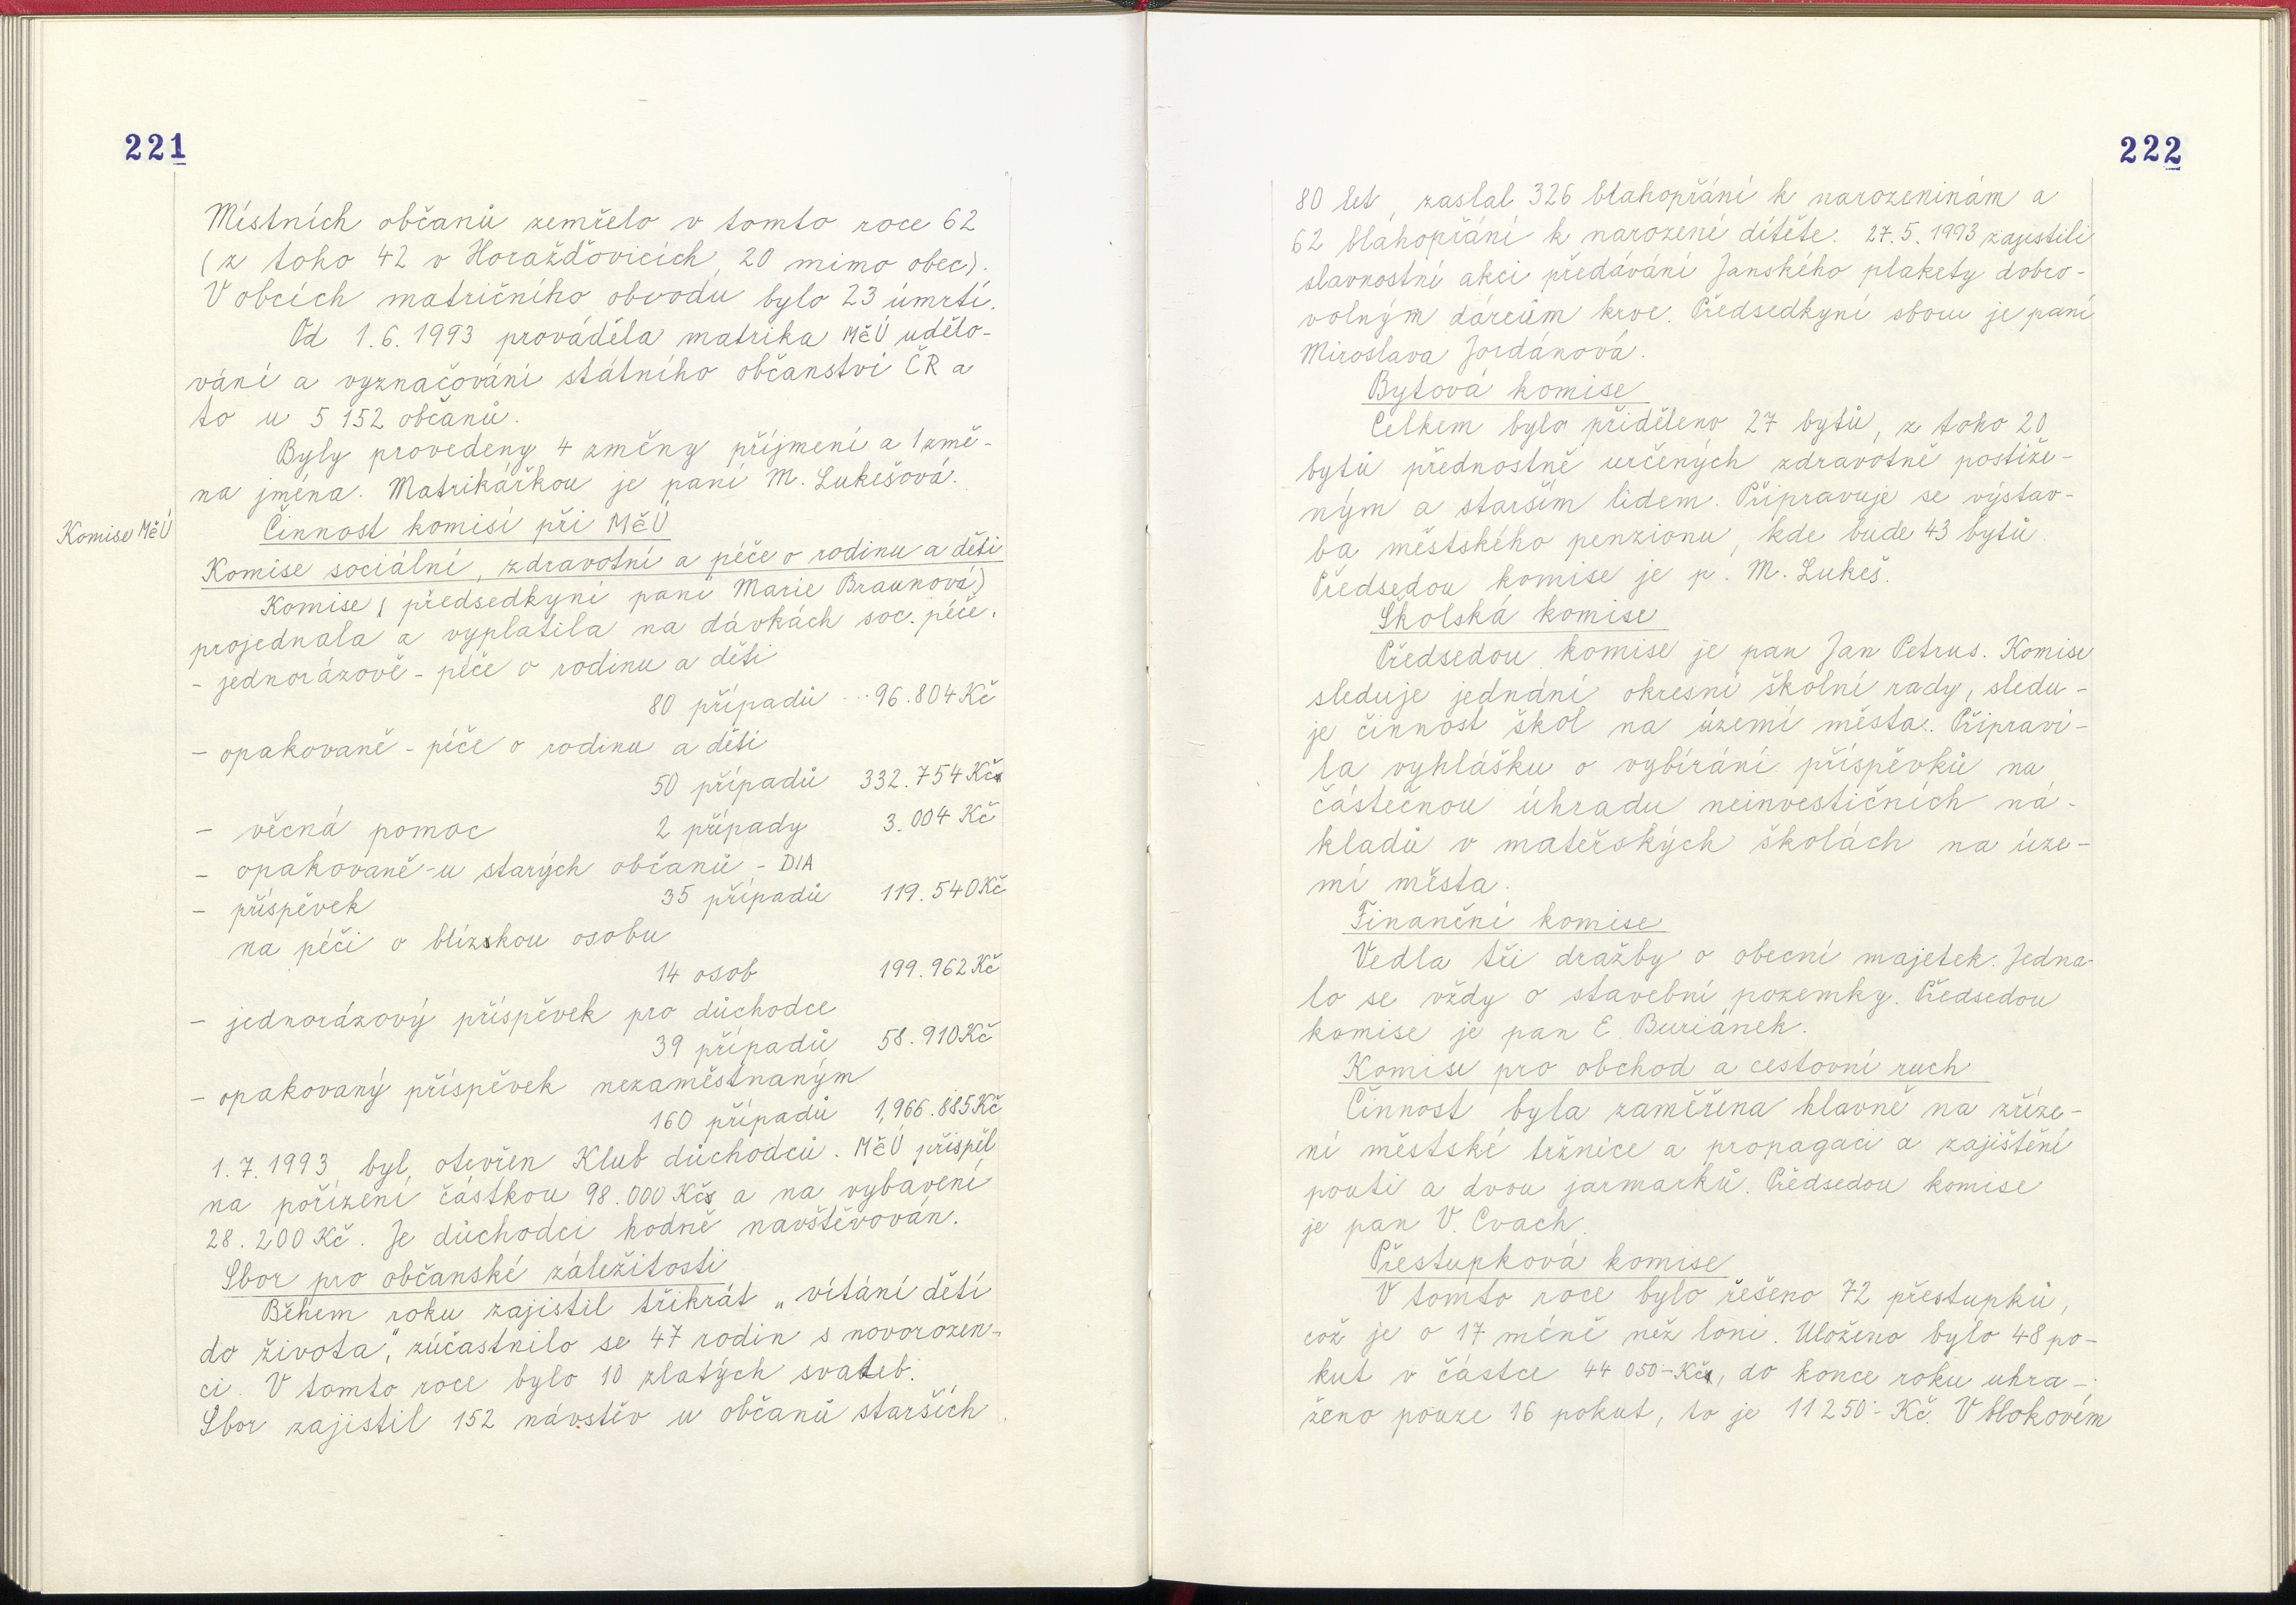 221
Místních občanů zemřelo v tomto roce 62
(z toho 42 v Horažďovicích, 20 mimo obec).
V obcích matričního obvodu bylo 23 úmrtí.
Od 1.6.1993 prováděla matrika MěÚ udělo-
vání a vyznačování státního občanství ČR a
to u 5 152 občanů.
Byly provedeny 4 změny příjmení a 1 změ-
na jména. Matrikářkou je paní M. Lukešová.
Komise MěÚ
Činnost komisí při MěÚ
Komise sociální, zdravotní a péče o rodinu a děti
Komise (předsedkyní paní Marie Braunová)
projednala a vyplatila na dávkách soc. péče.
- jednorázově - péče o rodinu a děti
80 případů ... 96.804 Kč
- opakovaně - péče o rodinu a děti
50 případů 332.754 Kčs
- věcná pomoc 2 případy 3.004 Kč
- opakovaně - u starých občanů - DIA
- příspěvek 35 případů 119.540 Kč
na péči o blízskou osobu
14 osob 199.962 Kč
- jednorázový příspěvek pro důchodce
39 případů 58.910 Kč
- opakovaný příspěvek nezaměstnaným
160 případů 1,966.885 Kč
1.7.1993 byl otevřen Klub důchodců. MěÚ přispěl
na pořízení částkou 98.000 Kčs a na vybavení
28.200 Kč. Je důchodci hodně navštěvován.
Sbor pro občanské záležitosti
Během roku zajistil třikrát „vítání dětí
do života“, zúčastnilo se 47 rodin s novorozen-
ci. V tomto roce bylo 10 zlatých svateb.
Sbor zajistil 152 návstěv u občanů starších
222
80 let, zaslal 326 blahopřání k narozeninám a
62 blahopřání k narození dítěte. 27.5.1993 zajistili
slavnostní akci předávání Janského plakety dobro-
volným dárcům krve. Předsedkyní sboru je paní
Miroslava Jordánová.
Bytová komise
Celkem bylo přiděleno 27 bytů, z toho 20
bytů přednostně určených zdravotně postiže-
ným a starším lidem. Připravuje se výstav-
ba městského penzionu, kde bude 43 bytů.
Předsedou komise je p. M. Lukeš.
Školská komise
Předsedou komise je pan Jan Petrus. Komise
sleduje jednání okresní školní rady, sledu-
je činnost škol na území města. Připravi-
la vyhlášku o vybírání příspěvků na
částečnou úhradu neinvestičních ná-
kladů v mateřských školách na úze-
mí města.
Finanční komise
Vedla tři dražby o obecní majetek. Jedna-
lo se vždy o stavební pozemky. Předsedou
komise je pan E. Buriánek.
Komise pro obchod a cestovní ruch
Činnost byla zaměřena hlavně na zříze-
ní městské tržnice a propagaci a zajištění
pouti a dvou jarmarků. Předsedou komise
je pan V. Cvach.
Přestupková komise
V tomto roce bylo řešeno 72 přestupků,
což je o 17 méně než loni. Uloženo bylo 48 po-
kut v částce 44 050.- Kčs, do konce roku uhra-
ženo pouze 16 pokut, to je 11 250.- Kč. V blokovém